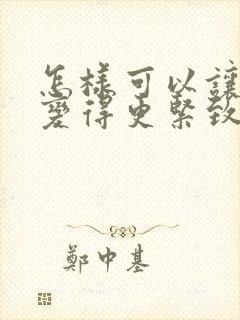 怎樣可以讓
變得更緊致
鄭中基